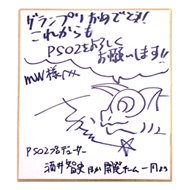 グランプリおめでとう!!
これからも
PSO2をよろしく
お願いします!!
mw様江
PSO2プロデューサー
酒井智史 ほか 開発チーム一同より